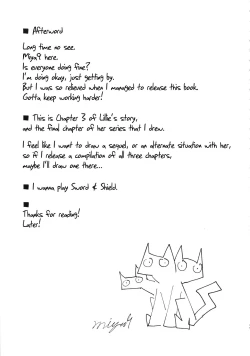 ■ Afterword
Long time no see.
Miya9 here.
Is everyone doing fine?
I'm doing okay, just getting by.
But I was so relieved when I managed to release this book.
Gotta keep working harder!
■ This is Chapter 3 of Lillie's story,
and the final chapter of her series that I drew.
I feel like I want to draw a sequel, or an alternate situation with her,
so if I release a compilation of all three chapters,
maybe I'll draw one there...
■ I wanna play Sword & Shield.
■
Thanks for reading!
Later!
miya9